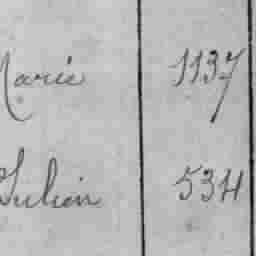 Marie 1137
Julien 534